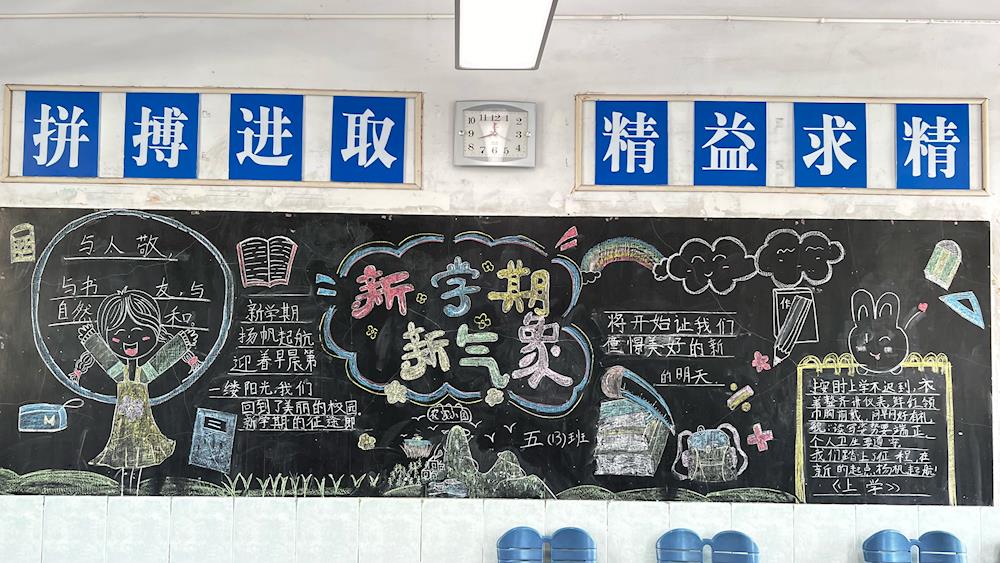 拼搏进取
精益求精
与人敬，
与书 友，与
自然 和
新学期
扬帆起航
迎着早晨第
一缕阳光，我们
回到了美丽的校园
新学期的征途即
新学期
新气象
五(13)班
将开始让我们
憧憬美好的新
的明天.
作
上学时上学不迟到,衣
着整齐讲仪表.鲜红领
巾胸前戴.
端正.
个人卫生
我们踏上征程,在
新的起点,扬帆起航!
《上学》
M